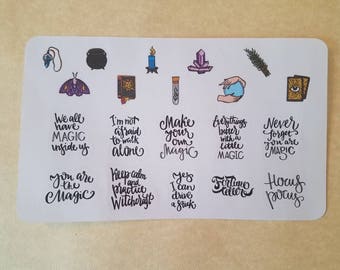 We all
have
MAGIC
inside us
I'm not
afraid
to walk
alone
Make
your
own
Magic
Everythings
better
with a
little
MAGIC
Never
forget
you are
MAGIC
you are
the
Magic
Keep calm
and
practice
Witchcraft
Yes
I can
drive
a stick
Fortune
teller
Hocus
pocus